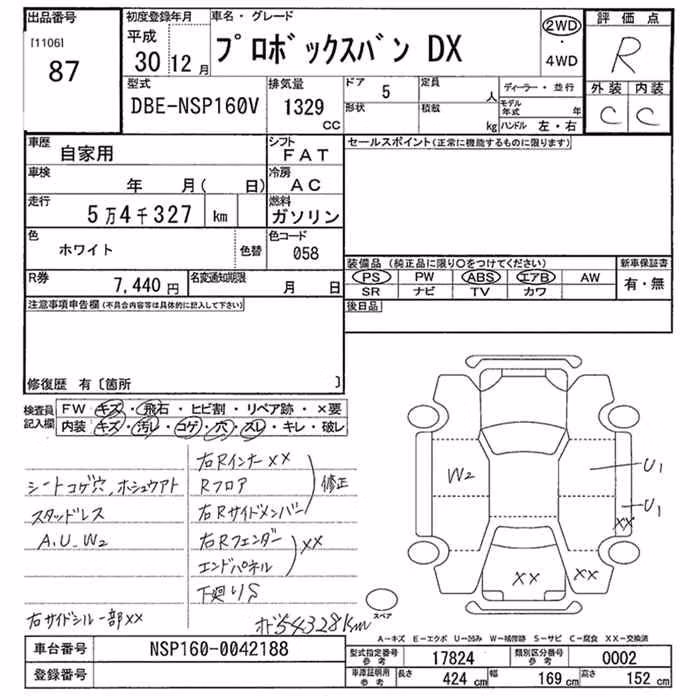 出品番号
[1106]
87
初度登録年月
平成
30 12月
車名・グレード
プロボックスバン DX
2WD
・
4WD
評価点
R
外装 内装
C C
型式
DBE-NSP160V
排気量
1329
CC
ドア 5
形状
定員
人
積載
kg
ディーラー・並行
モデル年式 年
ハンドル 左・右
車歴
自家用
シフト
FAT
車検
年 月( 日)
冷房
AC
走行
5万4千327 km
燃料
ガソリン
色
ホワイト
色替
色コード
058
R券
7,440円
名変通知期限
月 日
セールスポイント(正常に機能するものに限ります)
装備品 (純正品に限り○をつけてください)
PS PW ABS エアB AW
SR ナビ TV カワ
新車保証書
有・無
後日品
注意事項申告欄(不具合内容等は具体的に記入して下さい)
修復歴 有〔箇所 〕
検査員
記入欄
FW キズ・飛石・ヒビ割・リペア跡・×要
内装 キズ・汚レ・コゲ・穴・スレ・キレ・破レ
シートコゲ穴,ホシュウアト
スタッドレス
A.U.W2
右サイドシル一部××
右Rインナー××
Rフロア
右Rサイドメンバー
修正
右Rフェンダー
エンドパネル
××
下廻りS
ホド54328Km
W2
U1
U1
××
××
××
スペア
A−キズ E−エクボ U−凹み W−補修跡 S−サビ C−腐食 XX−交換済
車台番号
NSP160-0042188
登録番号
型式指定番号
参考
17824
類別区分番号
参考
0002
車庫証明用
参考
長さ
424 cm
幅
169 cm
高さ
152 cm